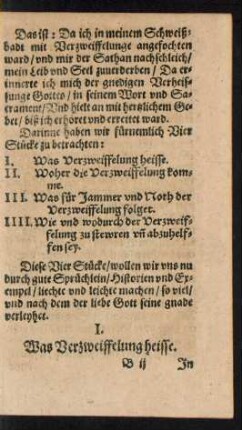 Das ist: Da ich in meinem Schweiß-
badt mit Verzweiffelunge angefochten
ward/ vnd mir der Sathan nachschleich/
mein Leib vnd Seel zuuerderben/ Da er-
innerte ich mich der gnedigen Verheis-
sunge Gottes/ in seinem Wort vnd Sa-
crament/ Vnd hielt an mit hertzlichem Ge-
bet/ biß ich erhöret vnd errettet ward.
Darinne haben wir fürnemlich Vier
Stücke zu betrachten:
I. Was Verzweiffelung heisse.
II. Woher die Verzweiffelung kom-
me.
III. Was für Jammer vnd Noth der
Verzweiffelung folget.
IIII. Wie vnd wodurch der Verzweif-
felung zu stewren vñ abzuhelf-
fen sey.
Diese Vier Stücke/ wollen wir vns nu
durch gute Sprüchlein/ Historien vnd Ex-
empel/ liechte vnd leichte machen/ so viel/
vnd nach dem der liebe Gott seine gnade
verleyhet.
I.
Was Verzweiffelung heisse.
B ij In